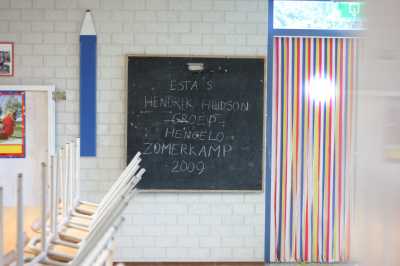 ESTA'S
HENDRIK HUDSON
GROEP
HENGELO
ZOMERKAMP
2009